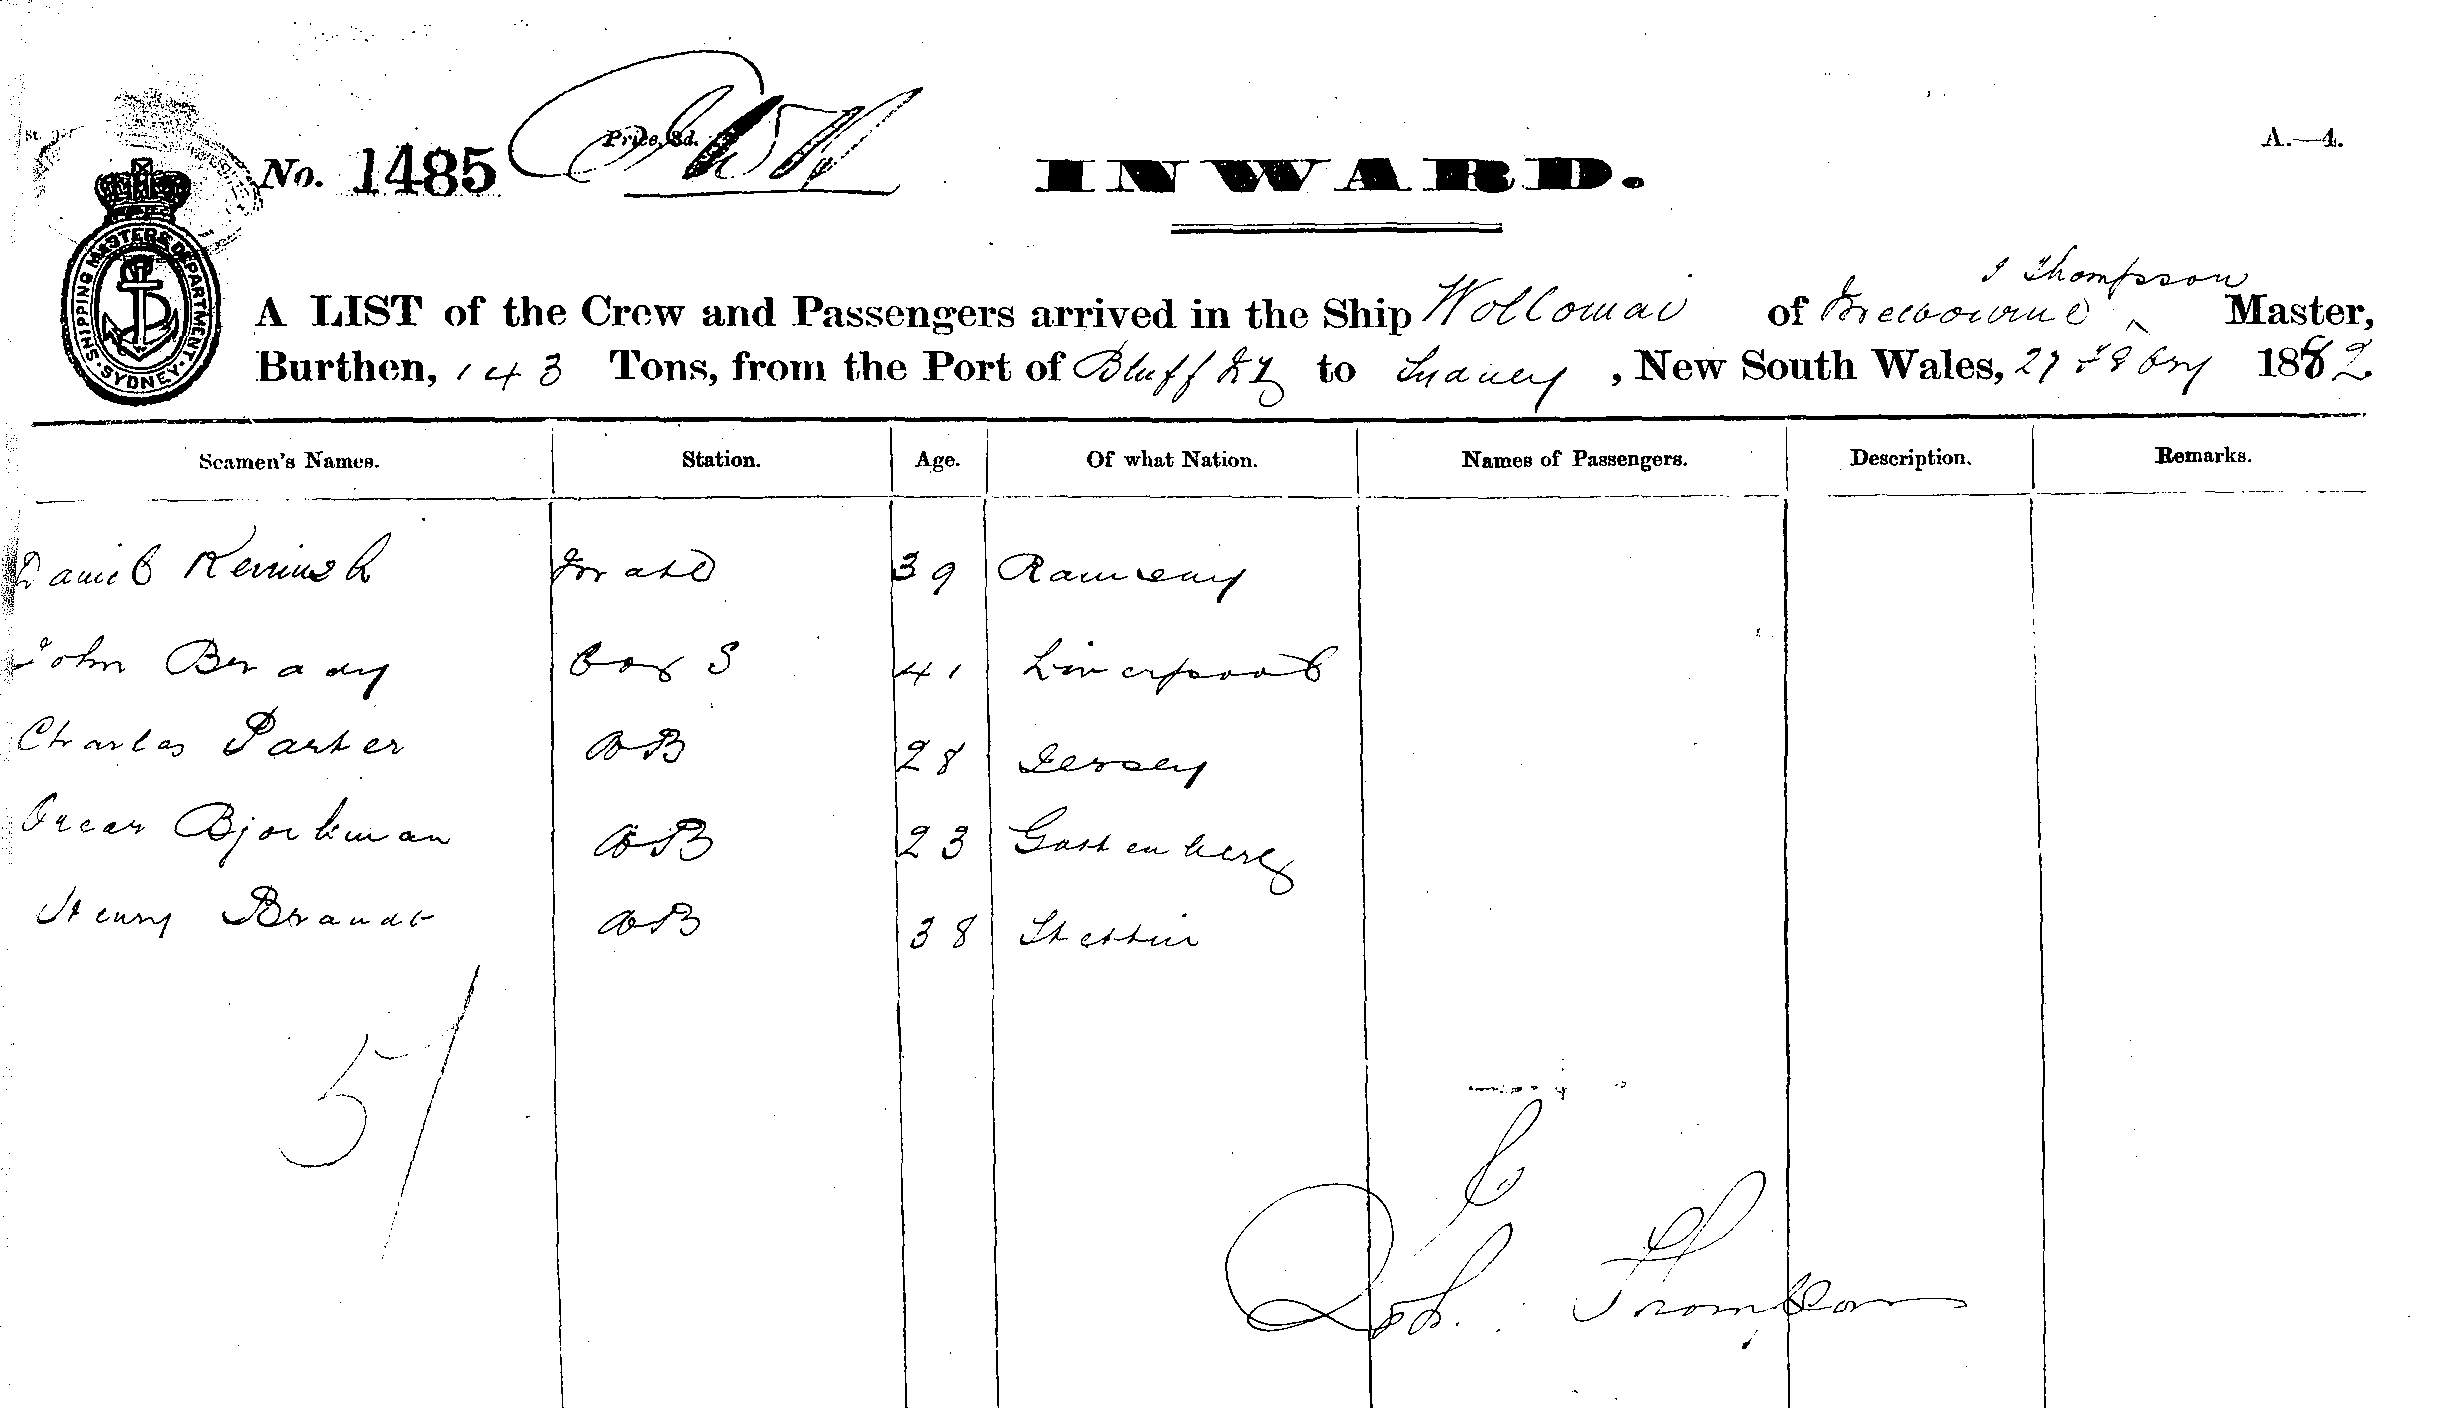 No. 1485
Price, 3d.
INWARD.
A.—4.
SHIPPING MASTERS DEPARTMENT. SYDNEY.
J Thompson
A LIST of the Crew and Passengers arrived in the Ship Wollomai of Melbourne, Master,
Burthen, 143 Tons, from the Port of Bluff NZ to Sydney, New South Wales, 27 Febry 1882
Seamen's Names. Station. Age. Of what Nation. Names of Passengers. Description. Remarks.
Daniel Kerruish Mate 39 Ramsey
John Brady Cox S 41 Liverpool
Charles Parker AB 28 Jersey
Oscar Bjorkman AB 23 Gothenberg
Henry Brandt AB 38 Stettin
5/
Thompson